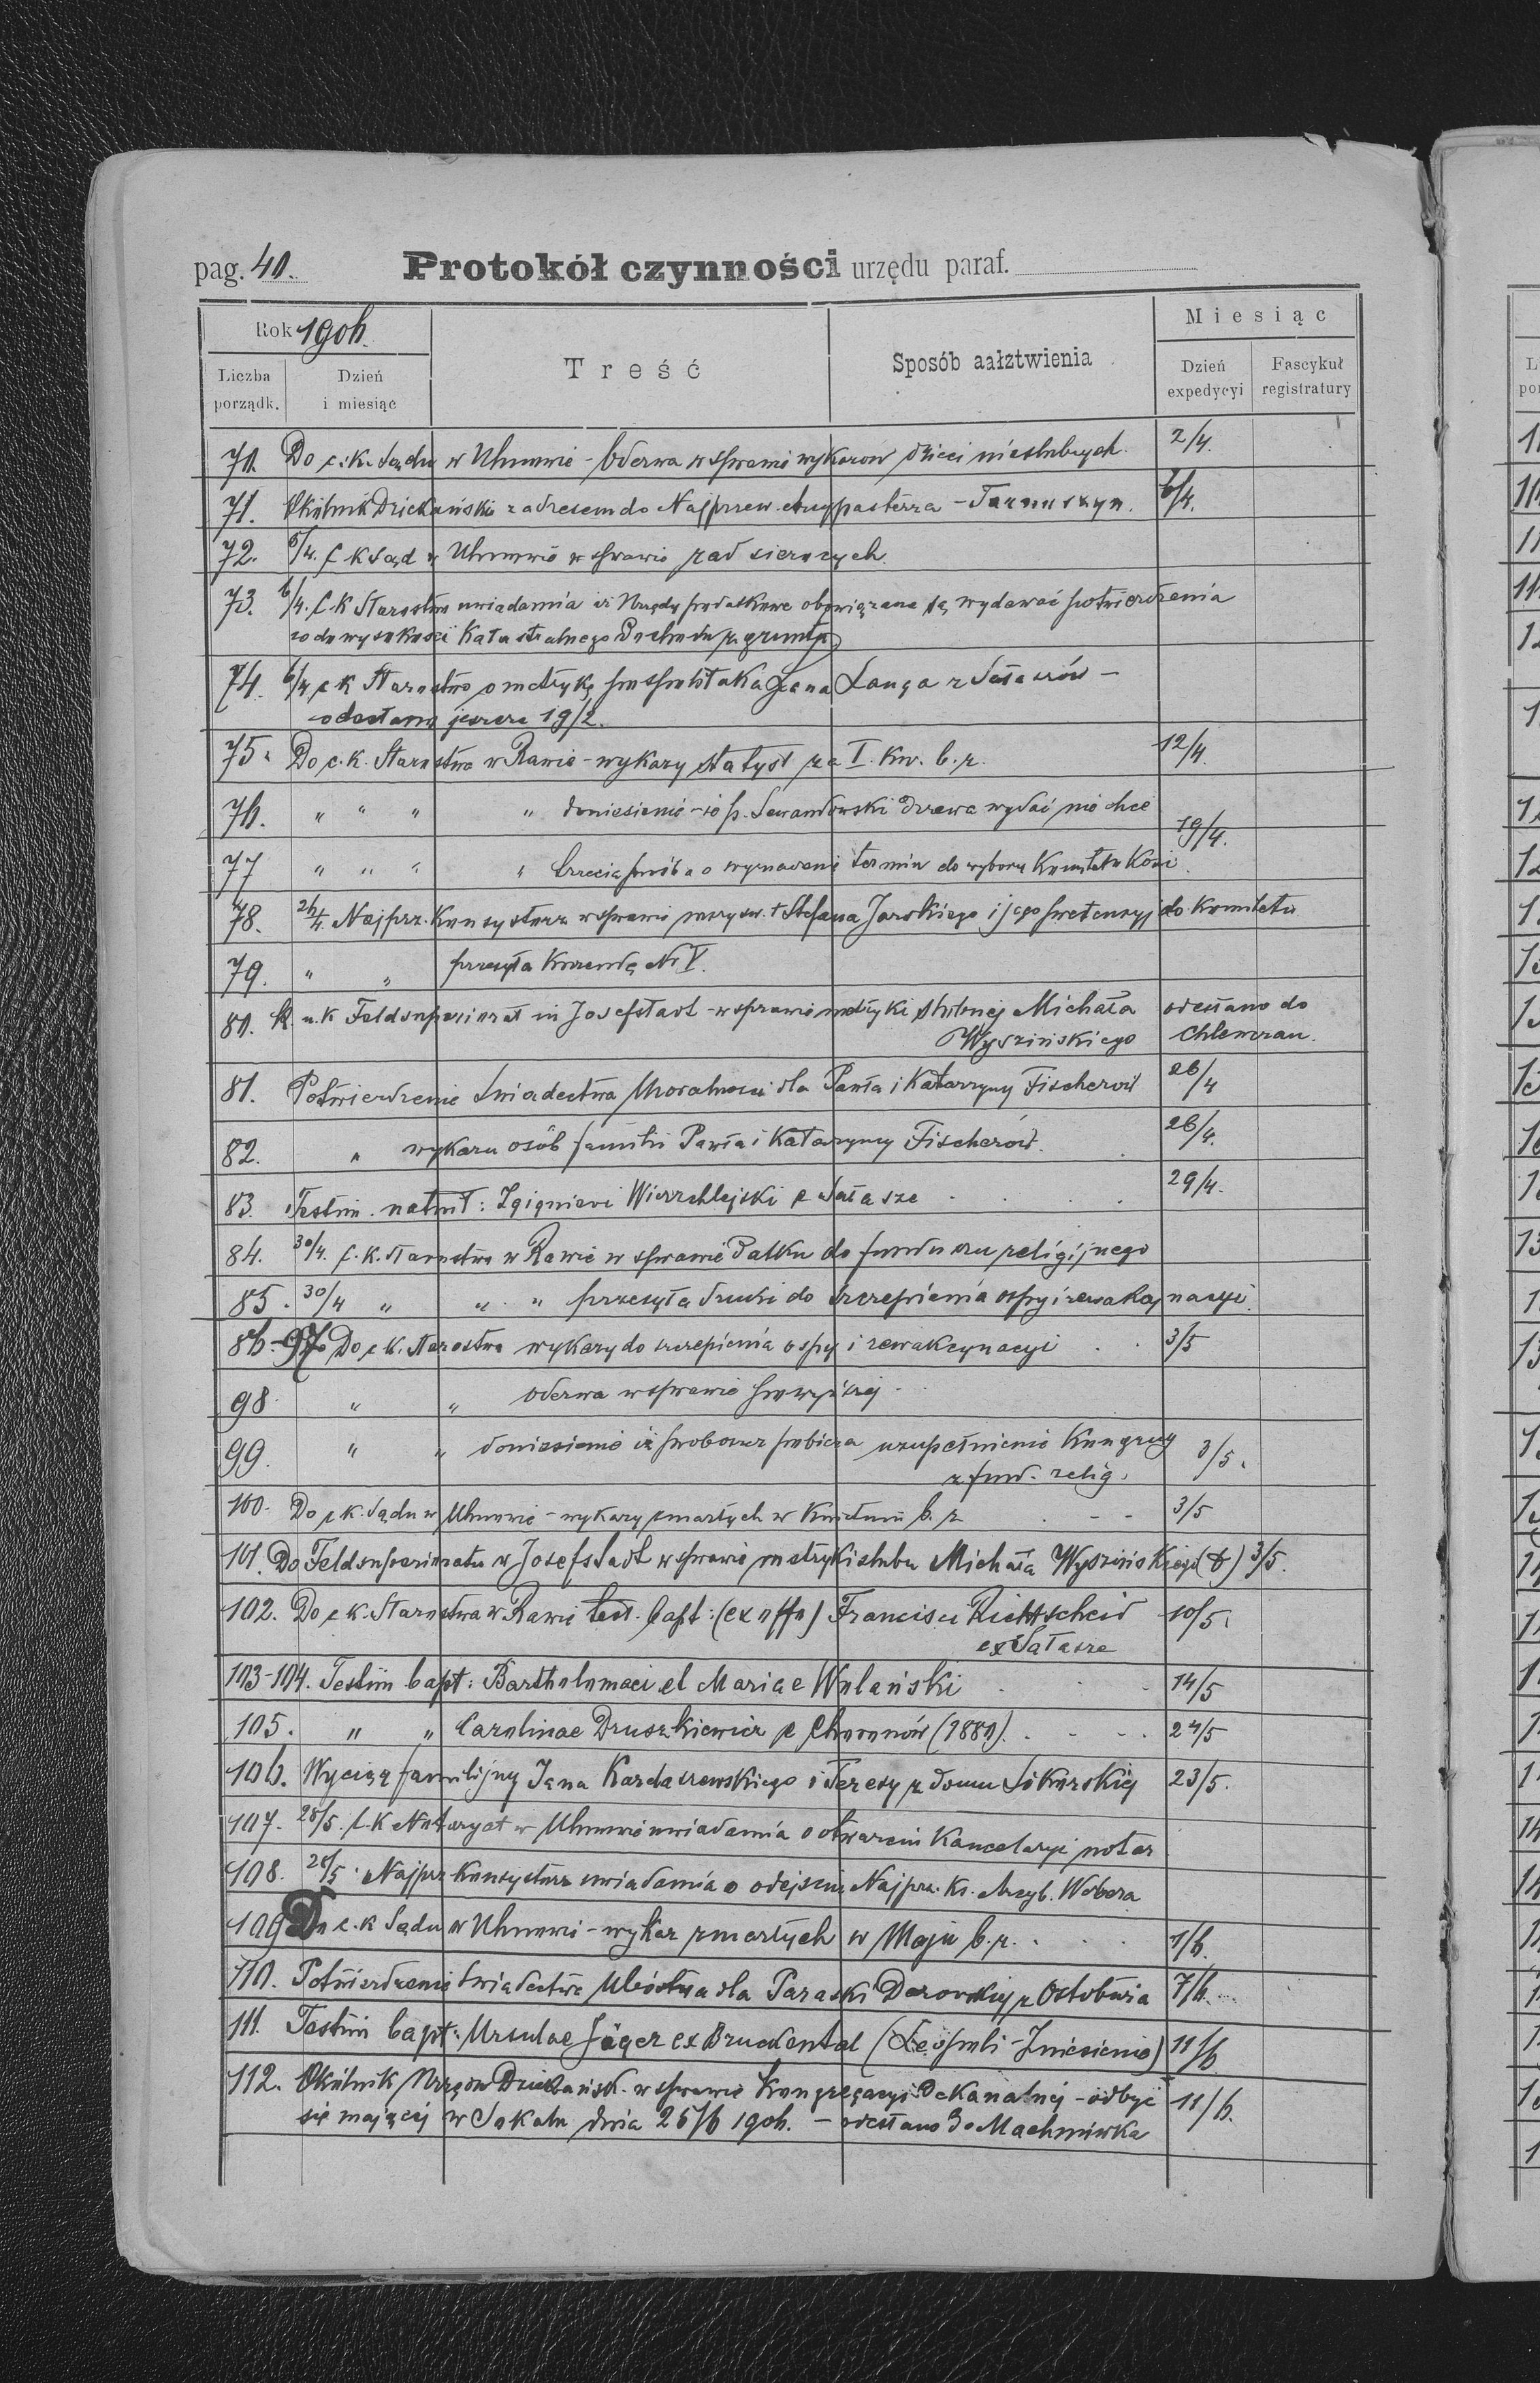 pag. 40.
Protokół czynności urzędu paraf.
Rok 1906.
Liczba porządk.
Dzień i miesiąc
Treść
Sposób aałztwienia
Miesiąc
Dzień expedycyi
Fascykuł registratury
70. Do c. k. Sądu w Uhnowie - Odezwa w sprawie wykazów dzieci nieślubnych. 2/4.
71. Okólnik Dziekański z adresem do Najprzew. Arcypasterza - Tarnoszyn. 6/4.
72. 6/4. C k Sąd w Uhnowie w sprawie rad sierocych
73. 6/4. C. K Starostwo uwiadamia iż Urzędy podatkowe obowiązane są wydawać potwierdzenia
co do wysokości Katastralnego Dochodu z gruntu
74. 6/4 c k Starostwo o metrykę pospolitaka Jana Langa z Sałaszów -
odesłano jeszcze 19/2.
75. Do c. k. Starostwa w Rawie - wykazy statyst za I. kw. b. r. 12/4.
76. " " " " doniesienie - że p. Lewandowski drzewa wydać nie chce
19/4.
77 " " " " trzecia prośba o wyznaczenie termin do wyboru Komitetu Kośc.
78. 26/4. Najprz. Konsystorz w sprawie mszy św. † Stefana Jarskiego i jego pretensyj do Komitetu
79. " " przesyła Kurendę Nr V.
80. k. u. k Feldsuperiorat in Josefstadt - w sprawie metryki ślubnej Michała odesłano do
Wyszińskiego Chlewczan.
81. Potwierdzenie Świadectwa Moralności dla Pawła i Katarzyny Fischerów 26/4
82. " wykazu osób familii Pawła i Katarzyny Fischerów. 26/4.
83. Testim. natvit: Zgigniewi Wierzchlejski e Sałasze 29/4.
84. 30/4. C. k. Starostwo w Rawie w sprawie Datku do funduszu religijnego
85. 30/4 " " " przesyła druki do szczepienia ospy i rewakcynacyi.
86-97 Do c k. Starostwa wykazy do szczepienia ospy i rewakcynacyi 3/5
98 " " odezwa w sprawie powyższej
99. " " doniesienie iż proboszcz pobiera uzupełnienie Kongruy 3/5.
z fund. relig.
100. Do c k. Sądu w Uhnowie - wykazy zmarłych w Kwietniu b. r. 3/5
101. Do Feldsuperioratu w Josefstadt w sprawie metryki ślubu Michała Wyszińskiego (†) 3/5.
102. Do c k. Starostwa w Rawie test. bapt: (ex offo) Francisci Richtscheid 10/5.
ex Sałasze
103-104. Testim bapt: Bartholomaei et Mariae Wolański 14/5
105. " " Carolinae Druszkiewicz e Chronów (1880). 24/5
106. Wyciąg familijny Jana Kardaszewskiego i Teresy z domu Sikorskiej 23/5.
107. 28/5. C. K Notaryat w Uhnowie uwiadamia o otwarciu Kancelaryi notar
108. 28/5. Najprz Konsystorz uwiadamia o odejściu Najprz. Ks. Arcyb. Webera
109. Do c. k Sądu w Uhnowie - wykaz zmarłych w Maju b. r. 1/6.
110. Potwierdzenie świadectwa Ubóstwa dla Paraski Dorockiej z Ostobuża 7/6.
111. Testim bapt: Ursulae Jäger ex Bruckental (Leopoli - Zniesienie) 11/6
112. Okólnik Urzędu Dziekańsk. w sprawie Kongregacyi Dekanalnej - odbyć 11/6.
się mającej w Sokalu dnia 26/6 1906. - odesłano do Machnówka